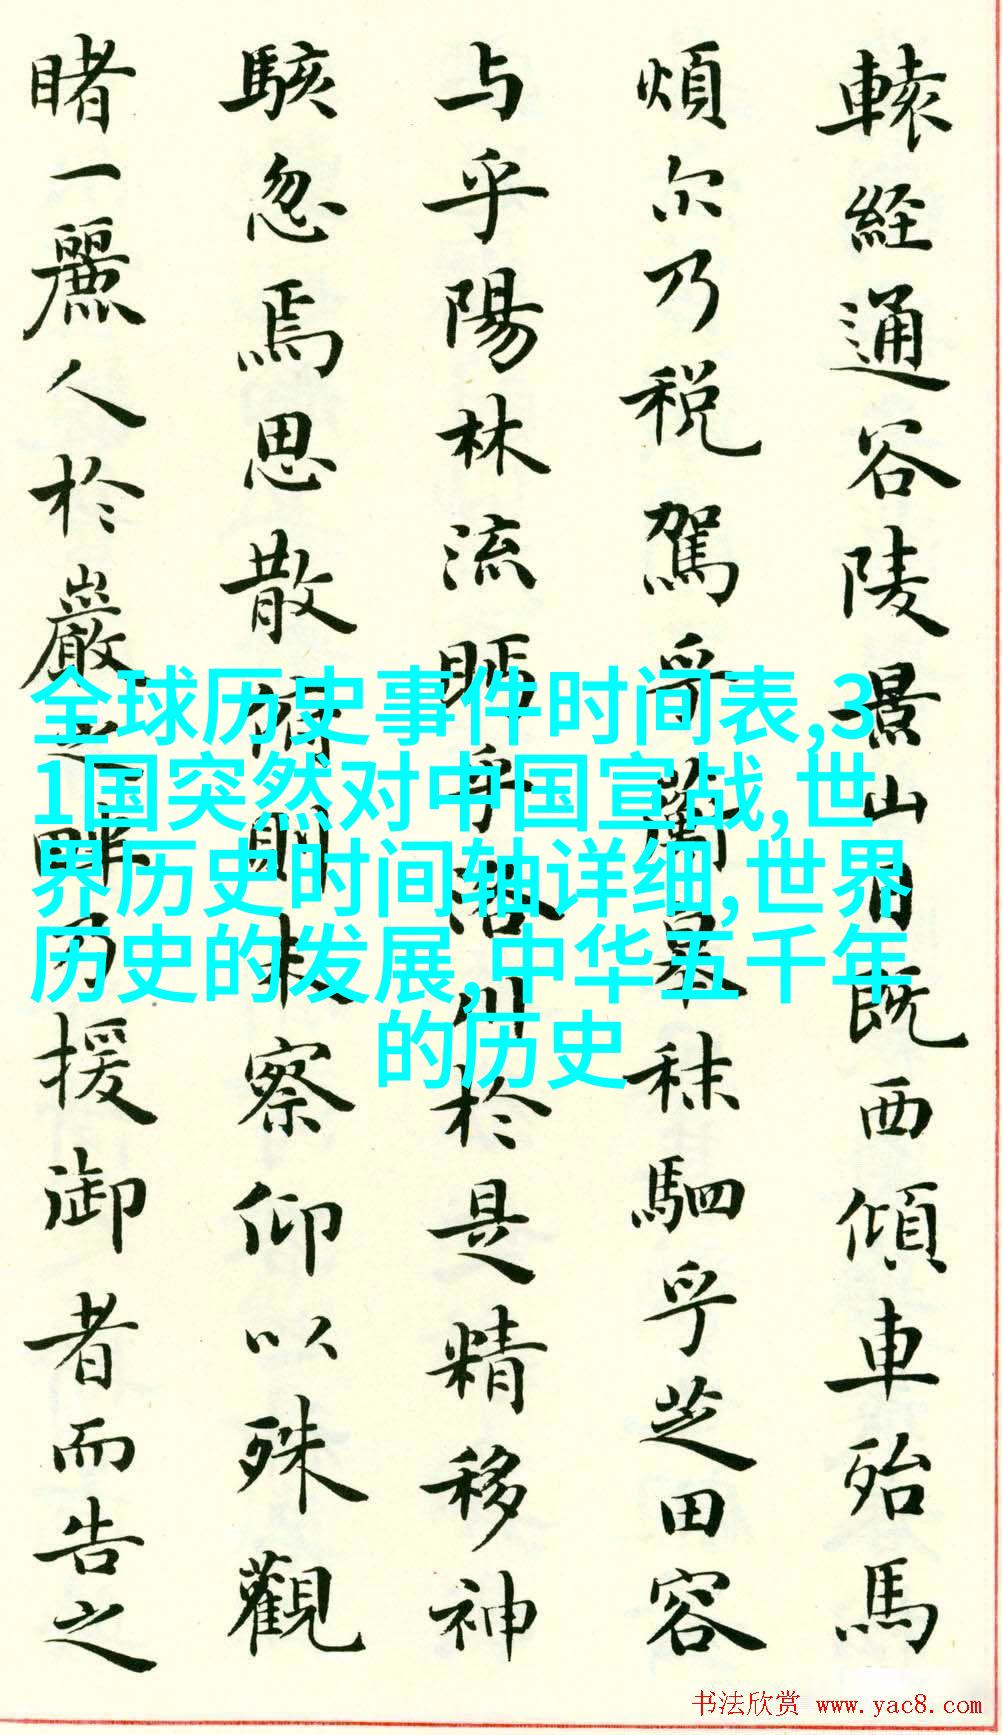 轅経通谷陵景山日既西傾車殆馬
煩尔乃税駕乎蘅皋秣駟乎芝田容
与乎陽林流眄乎洛川於是精移神
駭忽焉思散俯則未察仰以殊觀
睹一麗人於巖之畔乃援御者而告之
全球历史事件时间表,3
1国突然对中国宣战,世
界历史时间轴详细,世界
历史的发展,中华五千年
的历史
书法欣赏 www.yac8.com